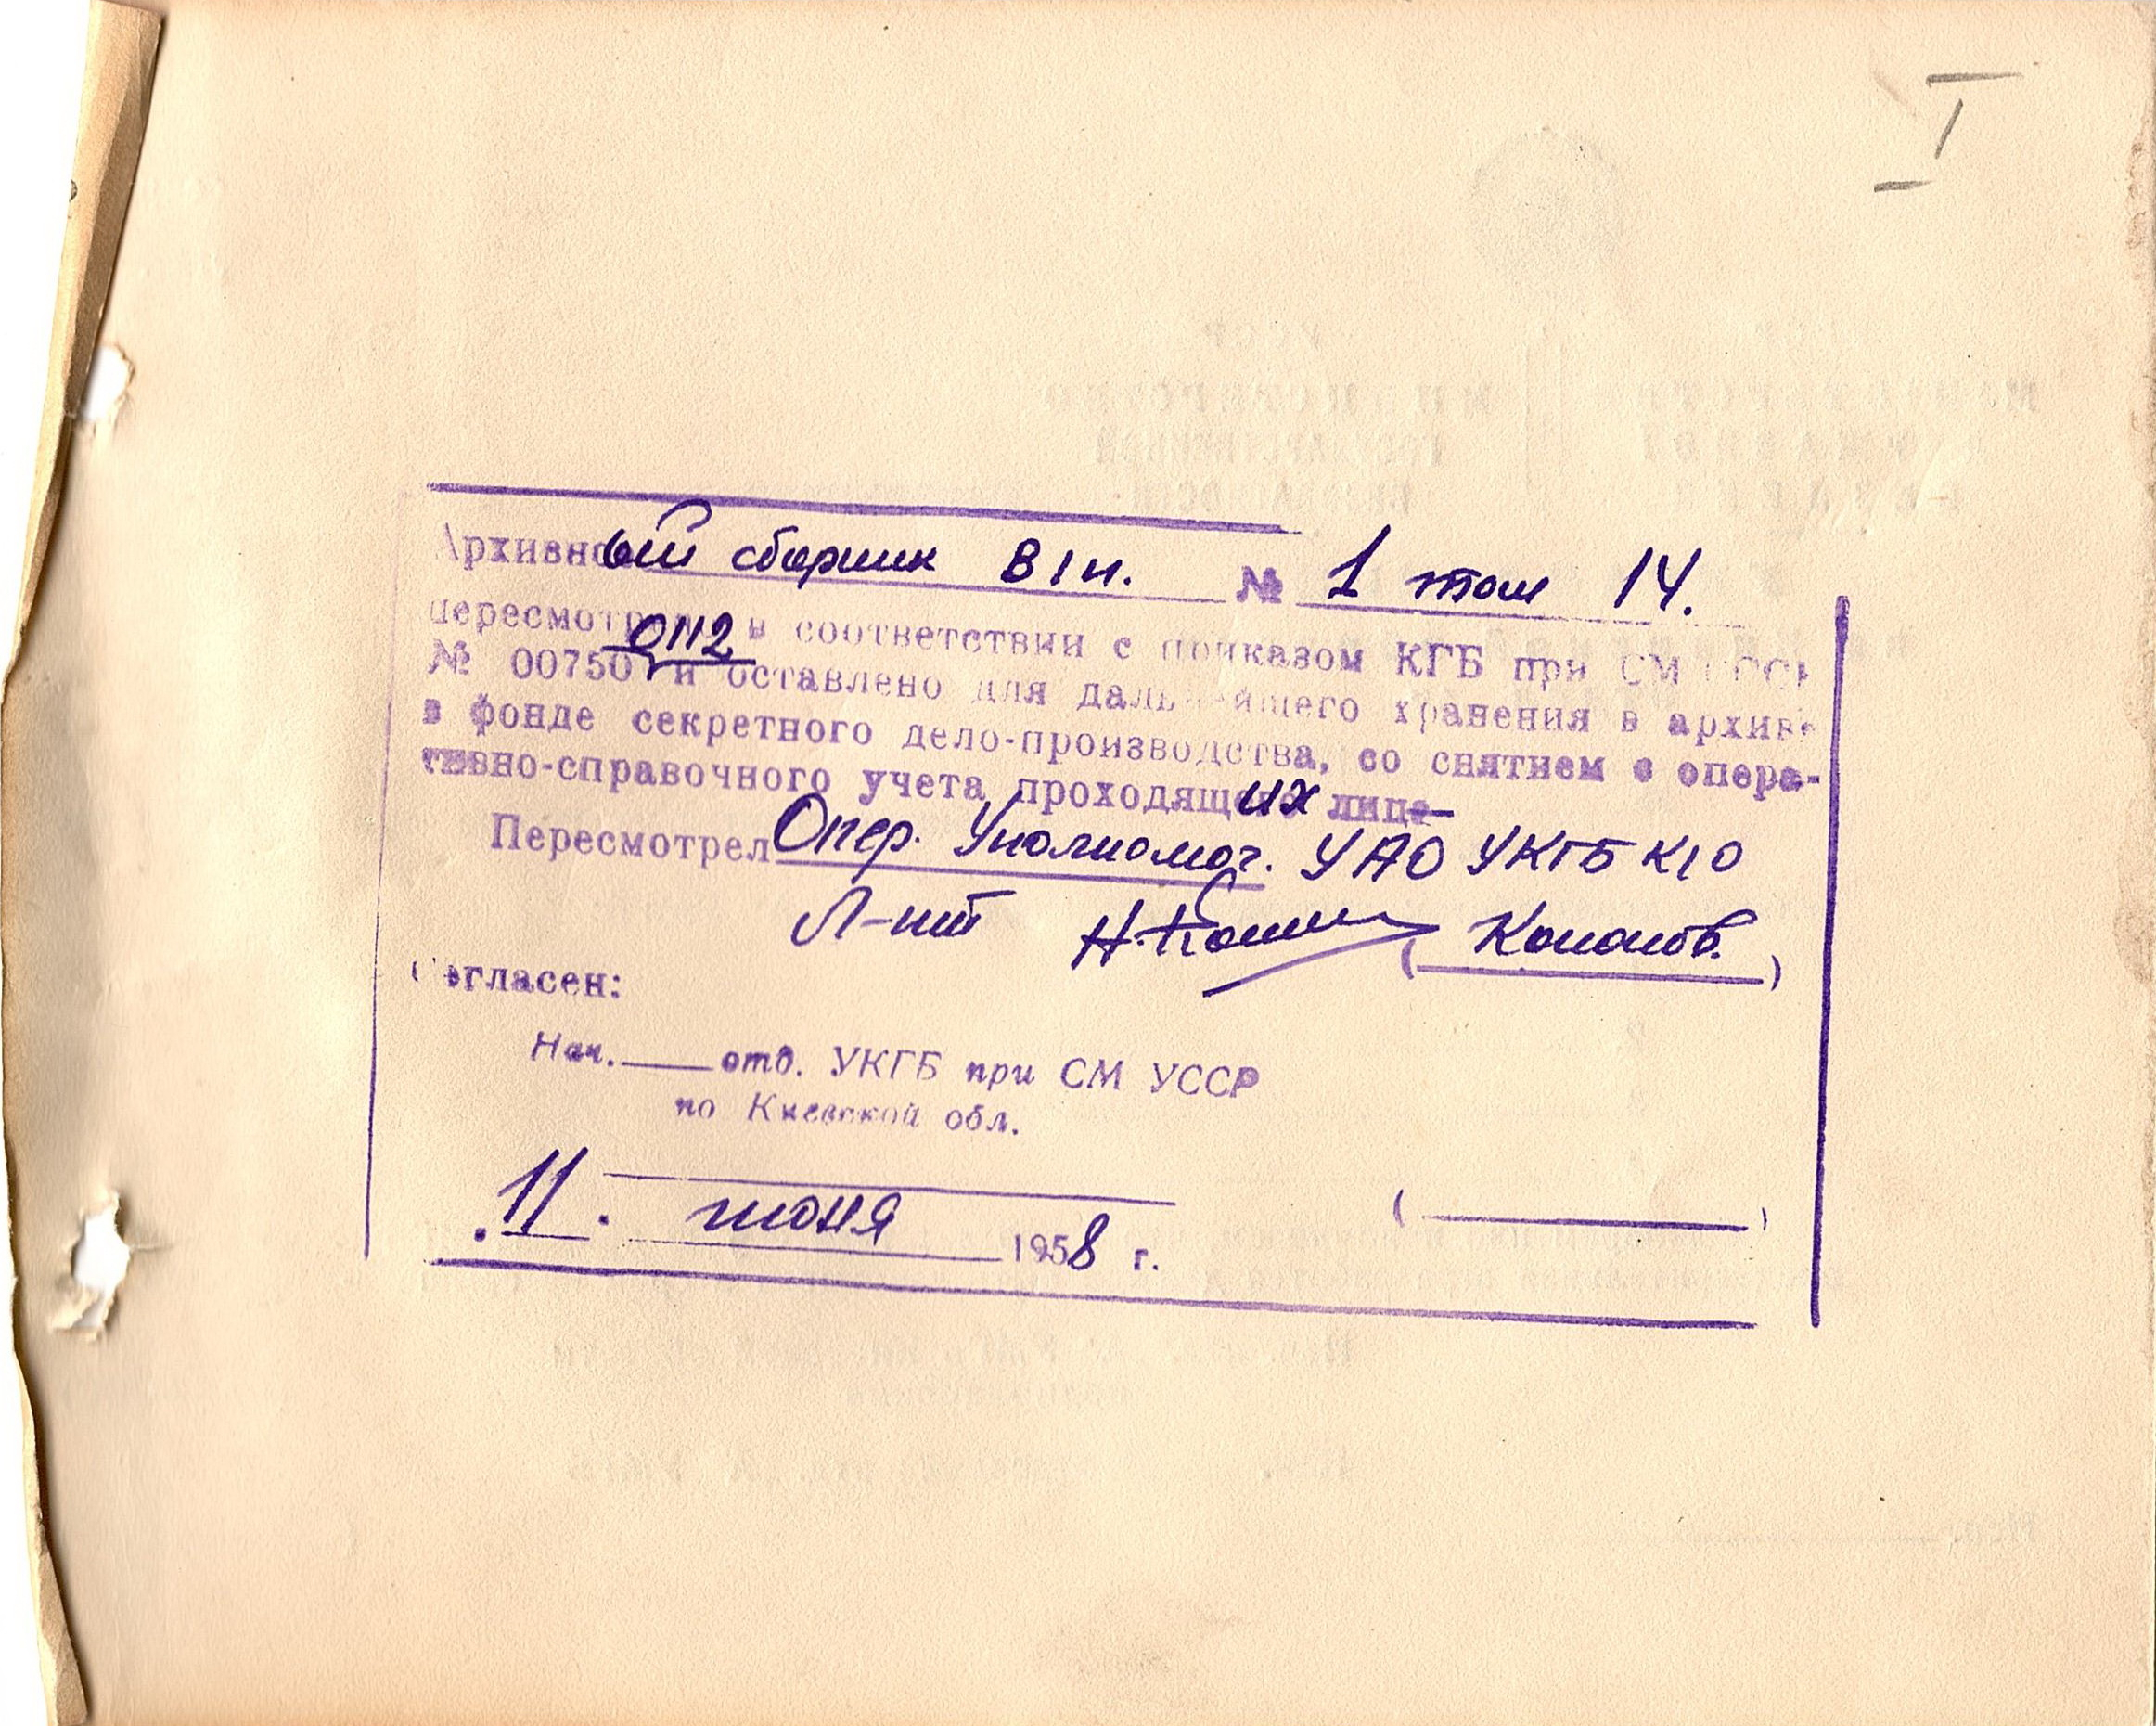 I
Архивный сборник В/н. № 1 том 14.
0112
пересмотрено в соответствии с приказом КГБ при СМ СССР
№ 00750 и оставлено для дальнейшего хранения в архиве
в фонде секретного дело-производства, со снятием с опера-
тивно-справочного учета проходящих лиц
Пересмотрел Опер. Уполномоч. УАО УКГБ К/О
Л-нт (Кононов.)
Согласен:
Нач. отд. УКГБ при СМ УССР
по Киевской обл.
11. июня 1958 г.